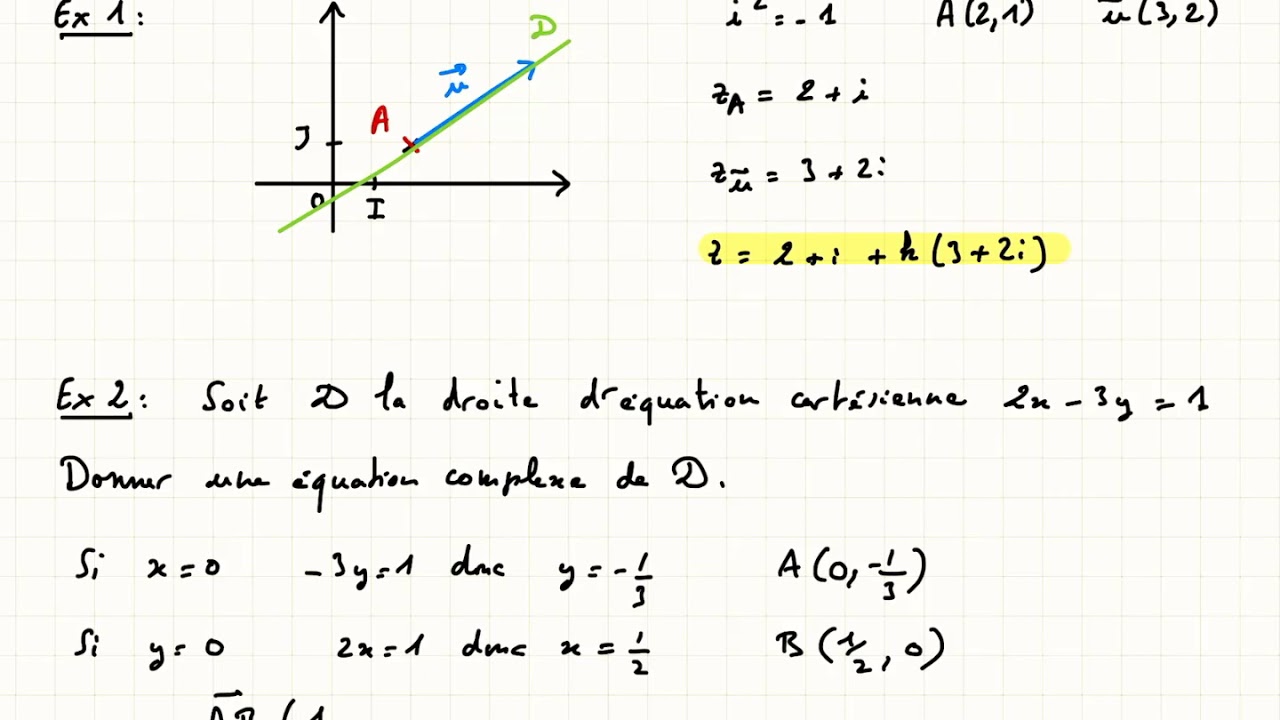 Ex 1:
i² = -1 A(2,1) u⃗(3,2)
D
u⃗
A
J
O
I
z_A = 2 + i
z_u⃗ = 3 + 2i
z = 2 + i + k(3 + 2i)
Ex 2: Soit D la droite d'équation cartésienne 2x - 3y = 1
Donner une équation complexe de D.
Si x = 0 -3y = 1 donc y = -1/3 A(0, -1/3)
Si y = 0 2x = 1 donc x = 1/2 B(1/2, 0)
AB⃗ (1